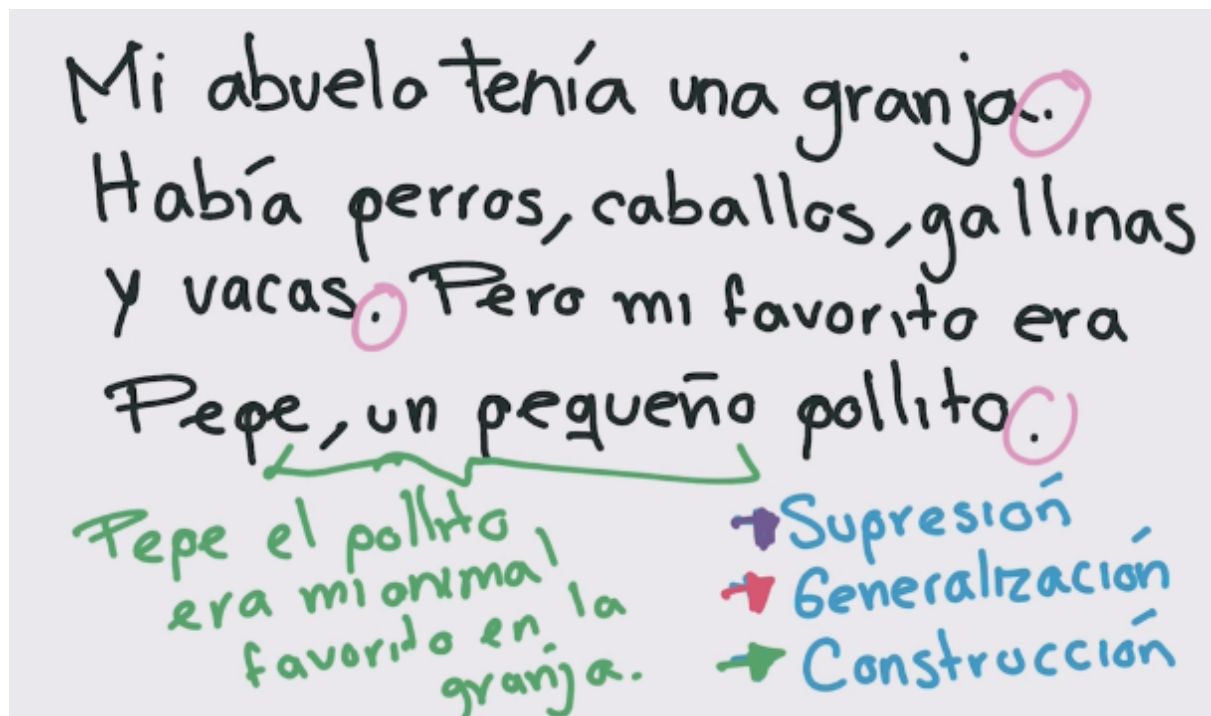 Mi abuelo tenía una granja.
Había perros, caballos, gallinas
y vacas. Pero mi favorito era
Pepe, un pequeño pollito.
Pepe el pollito
era mi animal
favorito en la
granja.
Supresión
Generalización
Construcción